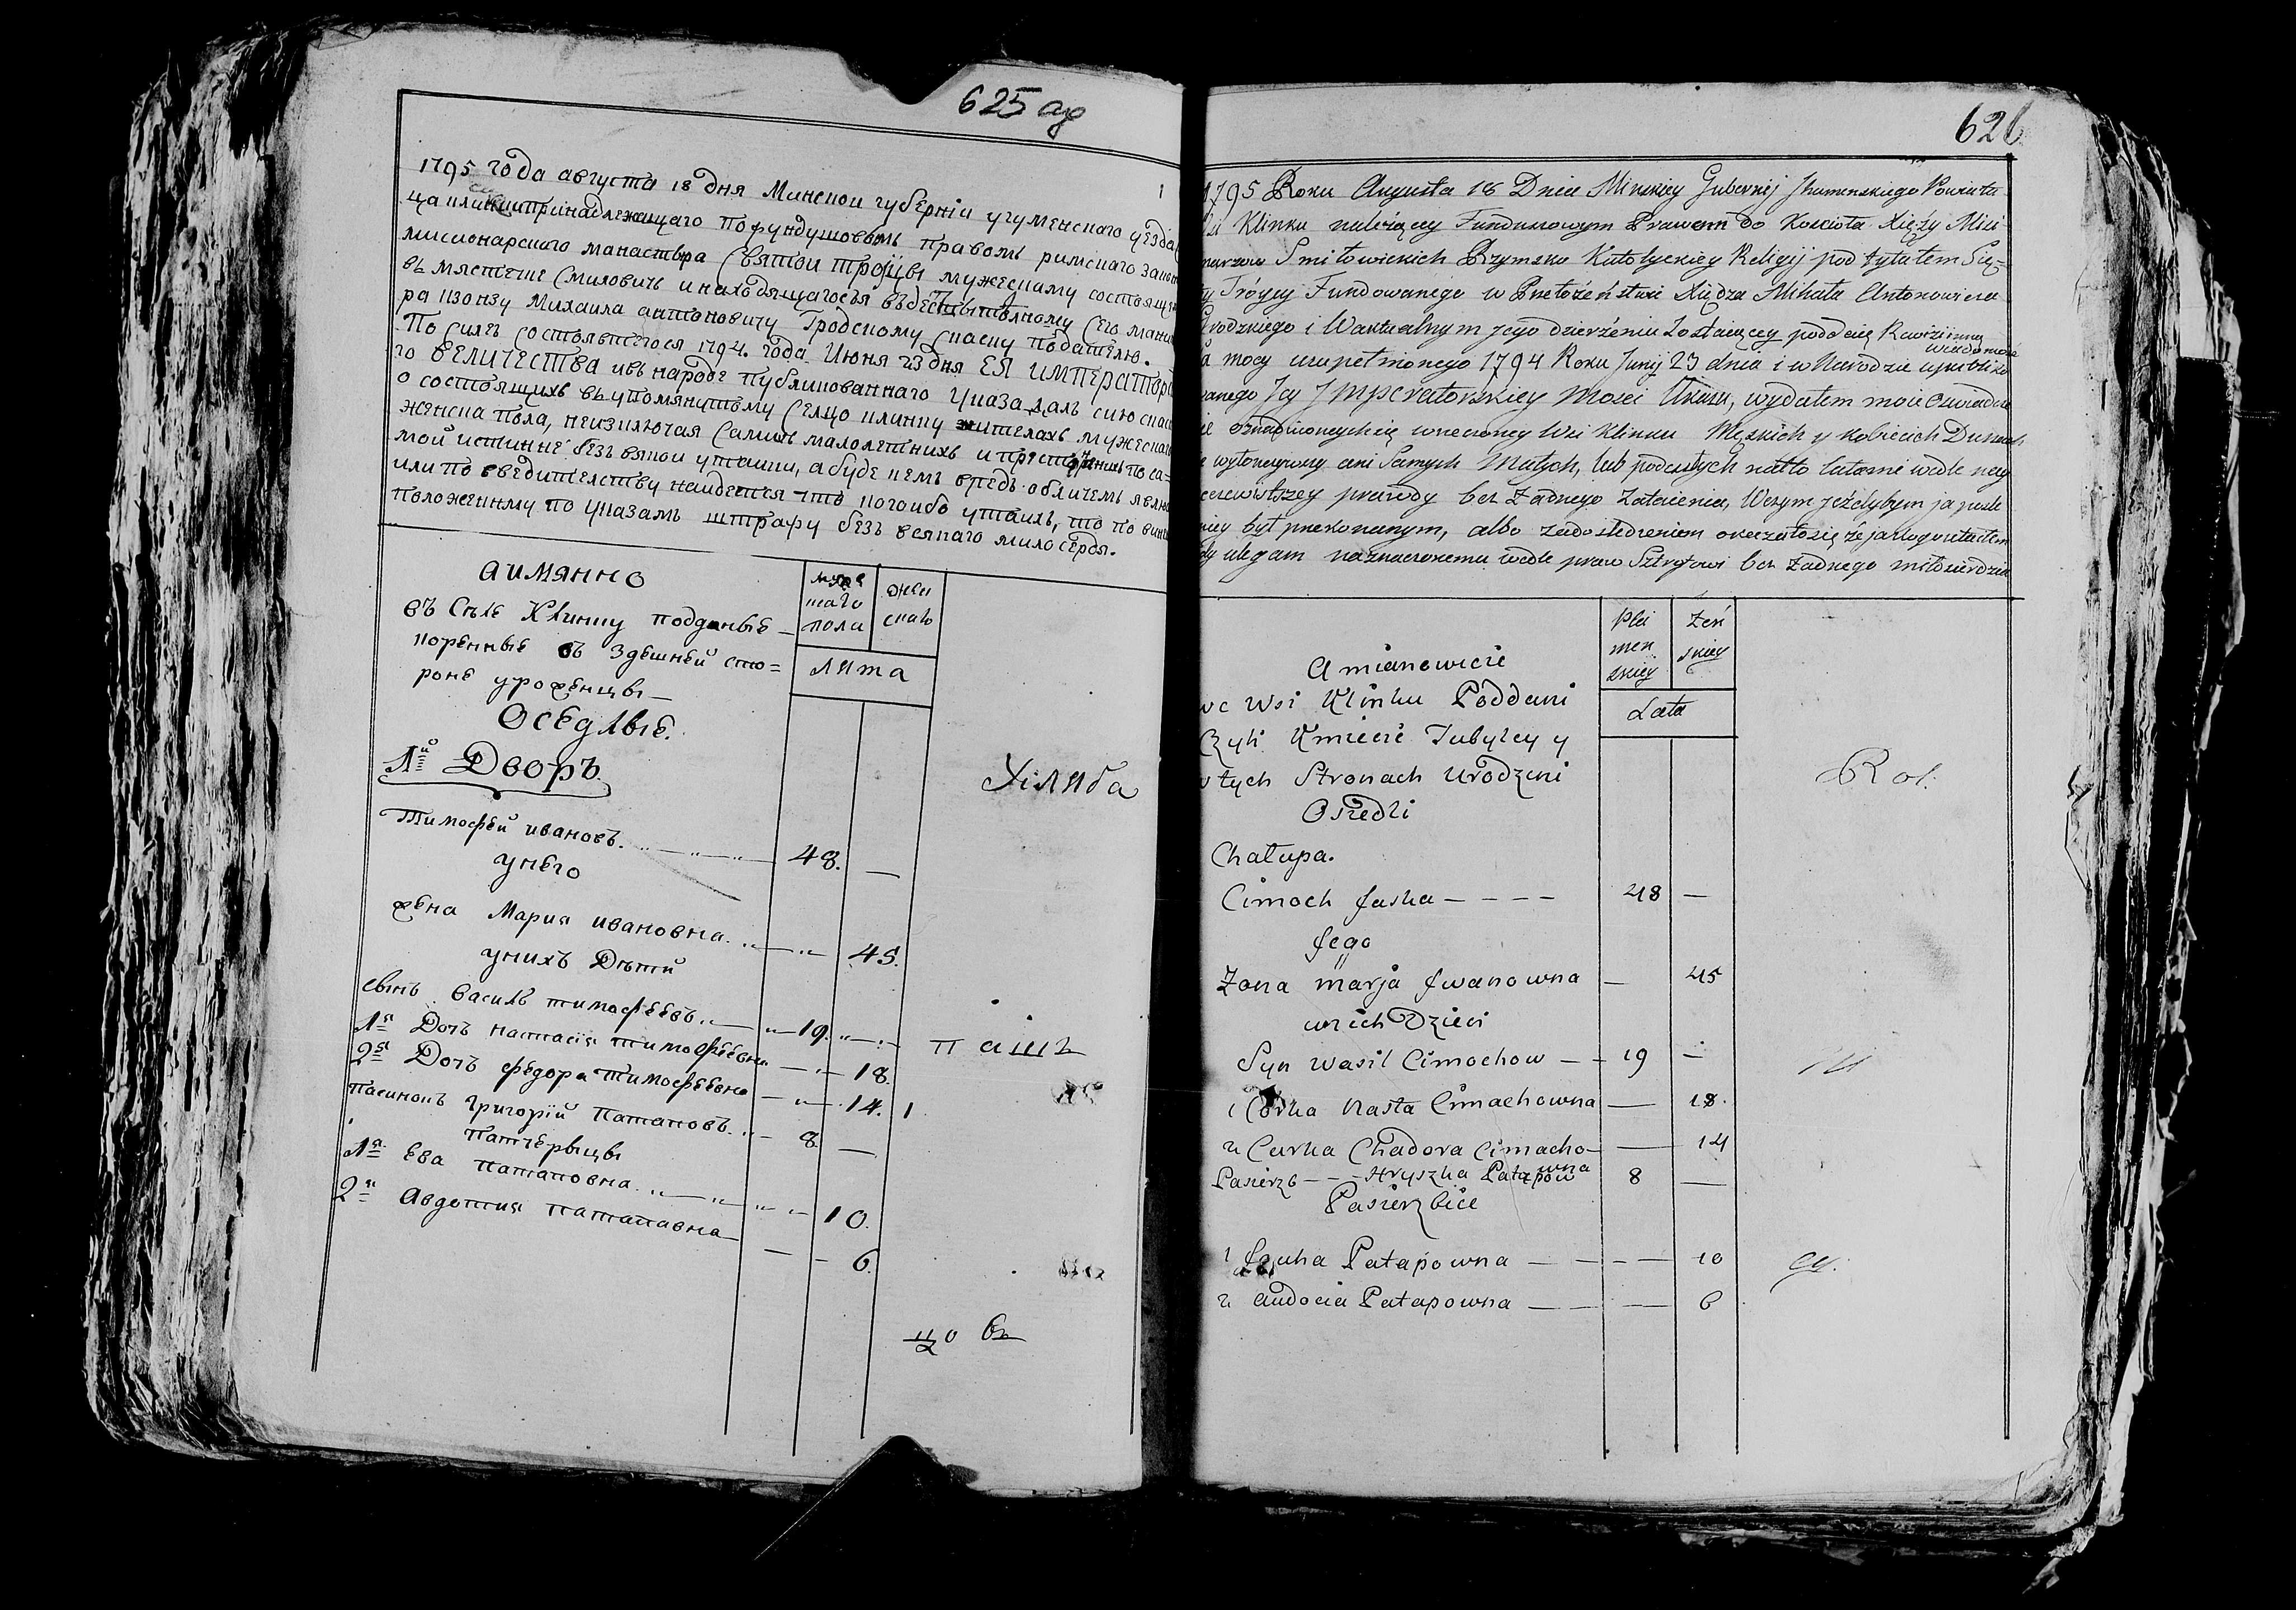 625 ар
1795 года августа 18 дня Минской губернии угуменского уезда
ца клинки принадлежащаго по фундушовомъ правомъ римского закон
мисионарского манастыра Святой троицы мужескому состоящ
въ мястечке Смиловичъ и находящагося въ действытелному его мана
ра ксонзу Михаила антоновичу Гродскому скаску подателю.
По силе состоявшегося 1794. года Июня 23 дня ЕЯ ИМПЕРАТОР
го ВЕЛИЧЕСТВА и въ народе публикованнаго указа далъ сию скас
о состоящихъ въ упомянутому селцо клинку жителахъ мужеска
женска пола, неизключая самихъ малолетнихъ и престарених по са=
мой истинне безъ всякои утайки, а буде кемъ впредь обличемъ явлю
или по сведителству найдется что кого либо утаилъ, то по вине
положенному по указамъ штрафу безъ всякаго милосердя.
аимянно
въ Селе Клинку подданые
коренные въ здешней сто=
роне уроженцы
Оседлые.
1й Дворъ
муже
скаго
пола
жен
скаго
лита
Хіліба
Тимофей ивановъ. 48. —
унего
жена Мария ивановна. 45.
унихъ Дети
сынъ василь тимофеевъ 19.
1я Дочъ настасія тимофеевна 18.
2я Дочъ федора тимофеевна 14. 1
пасинокъ григорій патаповъ. 8. —
патчерыцы
1я ева патаповна 10.
2я Авдотия патапавна 6.
п ашъ
цо въ
626
1795 Roku Augusta 18 Dnia Minskiey Gubernij Jhumenskiego Powiatu
Klinku należącey Funduszowym Prawem do Kościoła Xięży Misi-
narzow Smiłowickich Rzymsko Katolyckiey Religij pod tytułem Swię=
Tróycy Fundowanego w Przełożeństwie Xiędza Mihała Antonowicza
Grodzkiego i Waktualnym jego dzierżeniu zostaiącey poddaię Rewizijną
wiadomość
mocy uzupełnionego 1794 Roku Junij 23 dnia i w Narodzie upubliko
wanego Jey JMPeratorskiey Mości Ukazu, wydałem moie Oswiadcze
oznaydujących się wrzeczoney Wsi Klinku Męskich y Kobiecich Duszach
wyłonczywszy ani Samych Małych, lub podeszłych nadto latami wedle nay
szczerszey prawdy bez żadnego Zataienia, Wczym jeżelybym ja potel
niey był przekonanym, albo zadosledzeniem okazałosię że ja kogo utaiłem
ulegam naznaczonemu wedle praw Sztrafowi bez żadnego miłosierdzia
Amianowicie
we Wsi Klinku Poddani
Czyli Kmiecie Tubylcy y
w tych Stronach Urodzeni
Osiedli
Płci
men
skiey
Żeń
skiey
Lata
Rol.
Chałupa.
Cimoch Jaska — — — — 48 —
Jego
Żona marja Jwanowna — 45
unich Dzieci
Syn Wasil Cimochow — — 19 —
1 Corka Nasta Cimachowna — 18.
2 Curka Chadora Cimacho- — 14
wna
Pasierzb — — Hryszka Patapow 8 —
Pasierzbice
1 Patapowna — — — — 10
2 Audocia Patapowna — — — 6